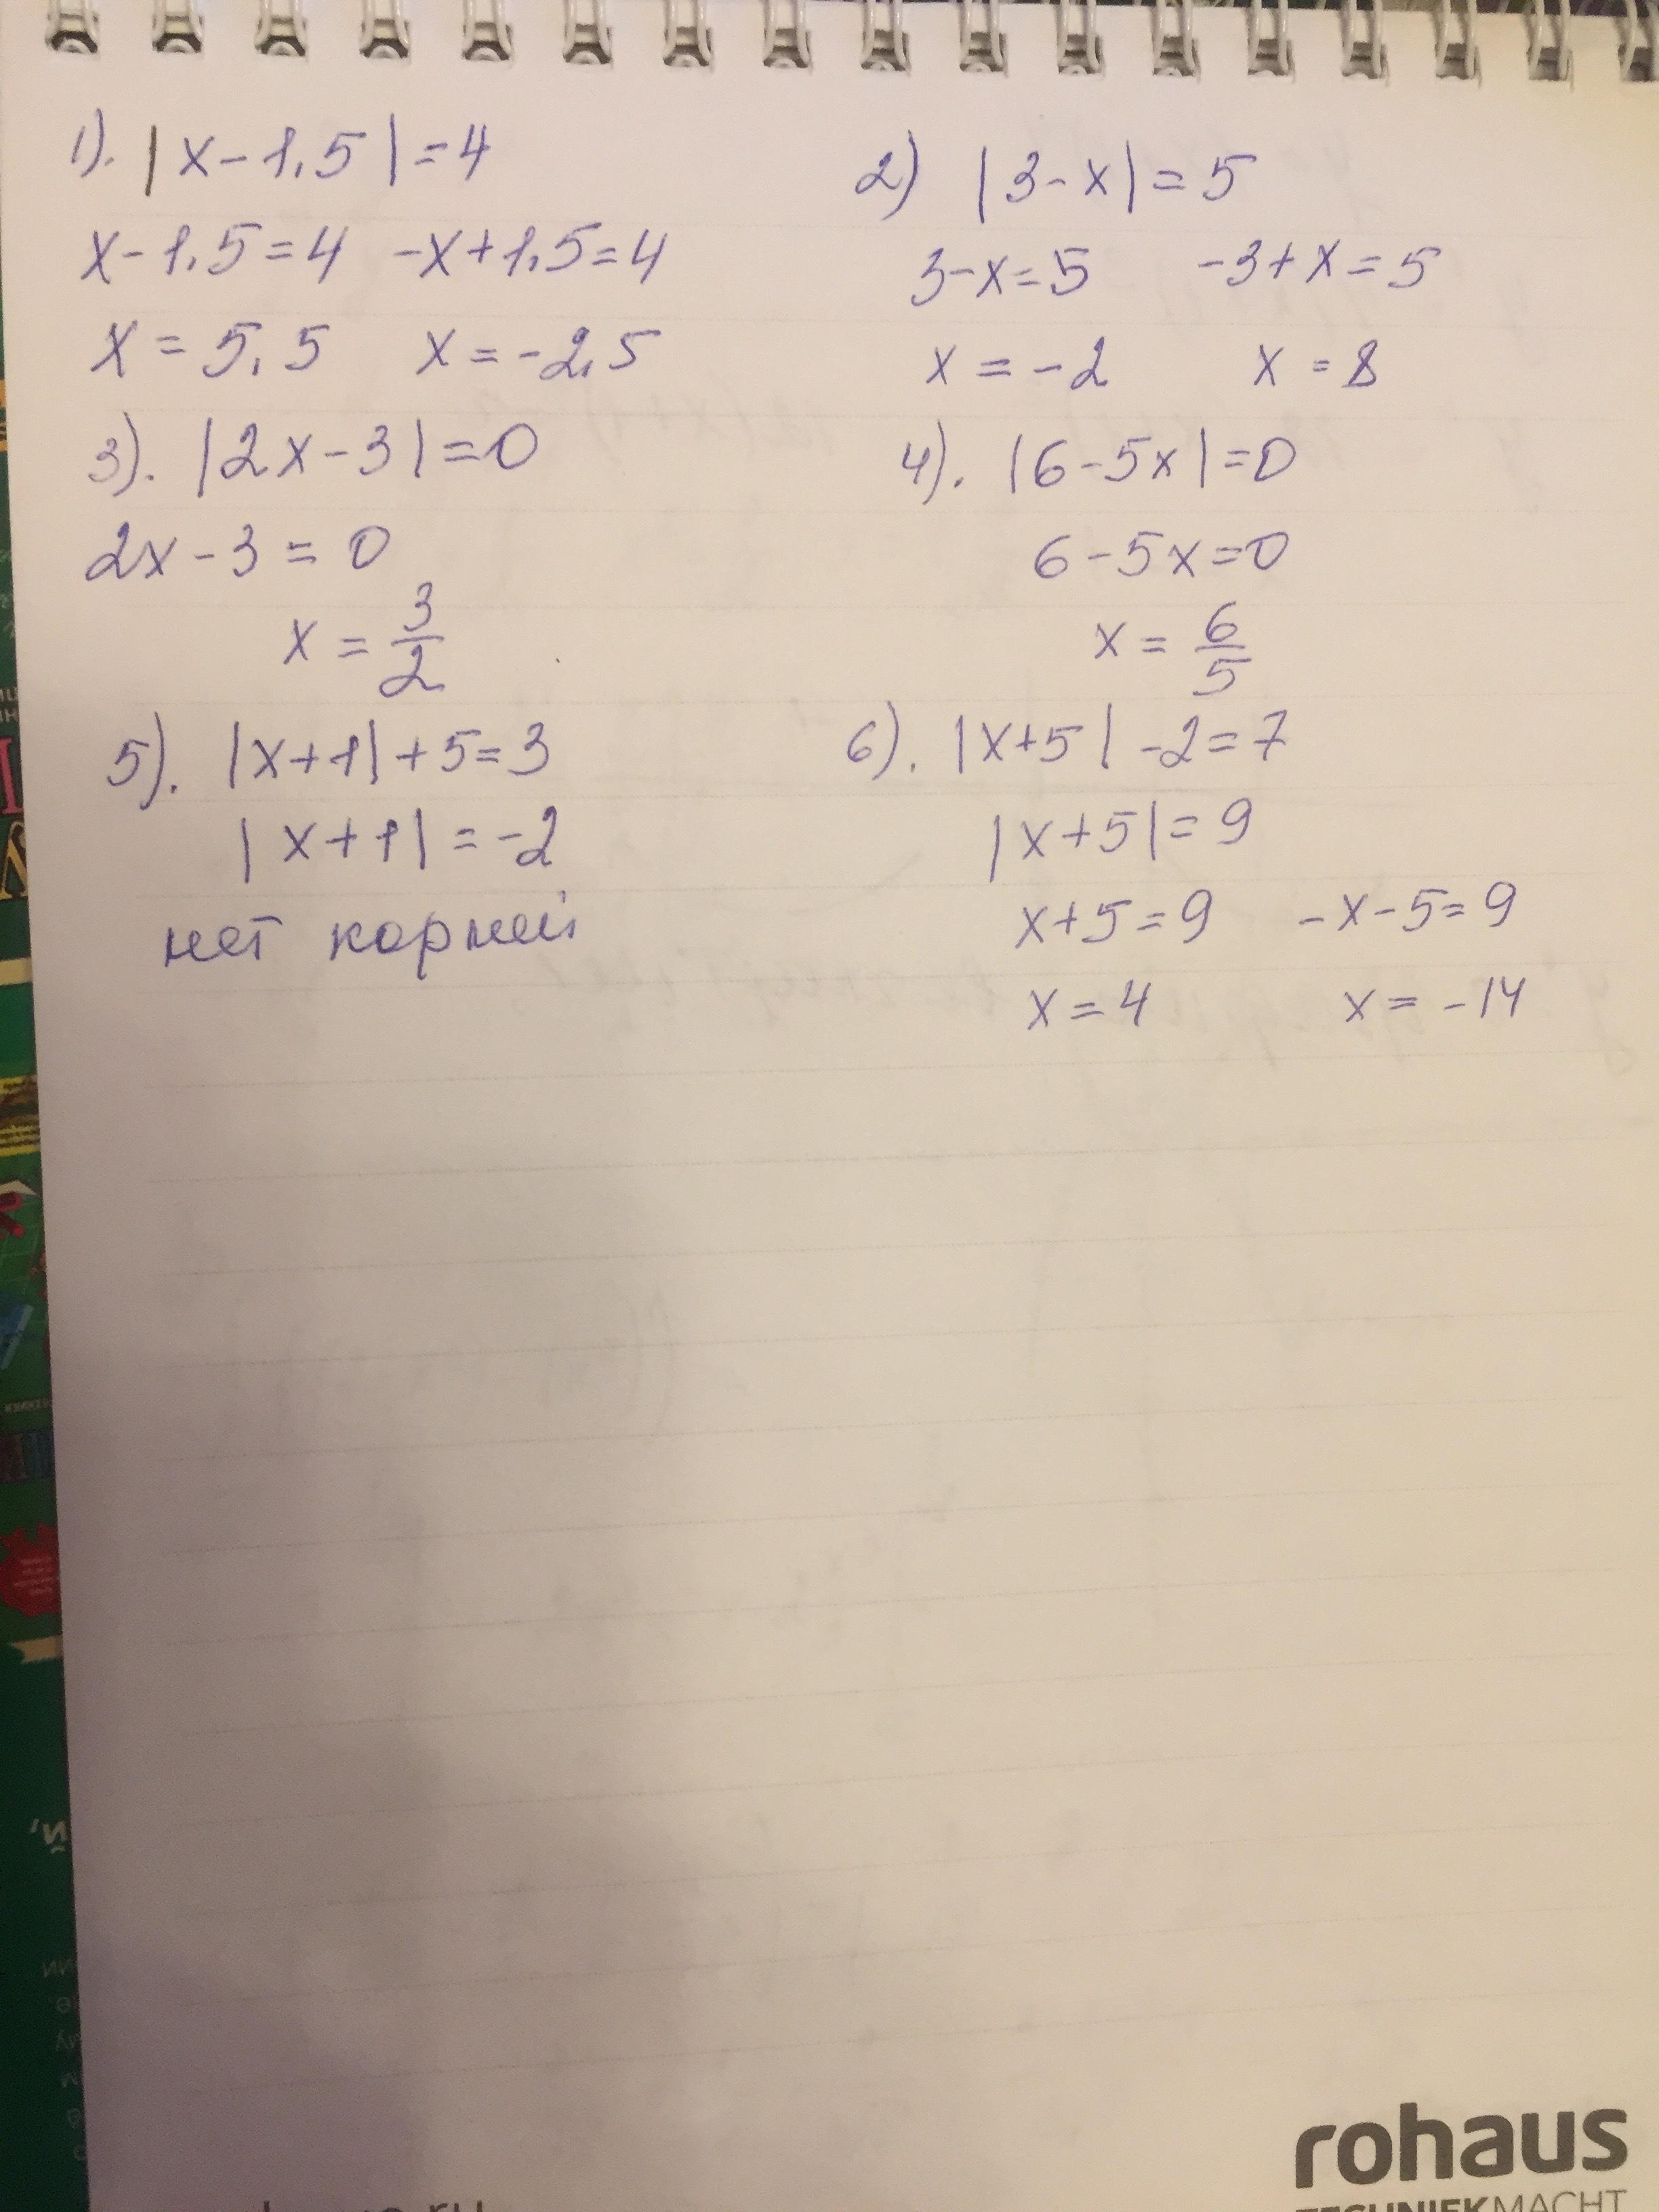 1). |x-1,5|=4
x-1,5=4 -x+1,5=4
x=5,5 x=-2,5
2) |3-x|=5
3-x=5 -3+x=5
x=-2 x=8
3). |2x-3|=0
2x-3=0
x=3/2
4). |6-5x|=0
6-5x=0
x=6/5
5). |x+1|+5=3
|x+1|=-2
нет корней
6). |x+5|-2=7
|x+5|=9
x+5=9 -x-5=9
x=4 x=-14
rohaus
TECHNIEKMACHT